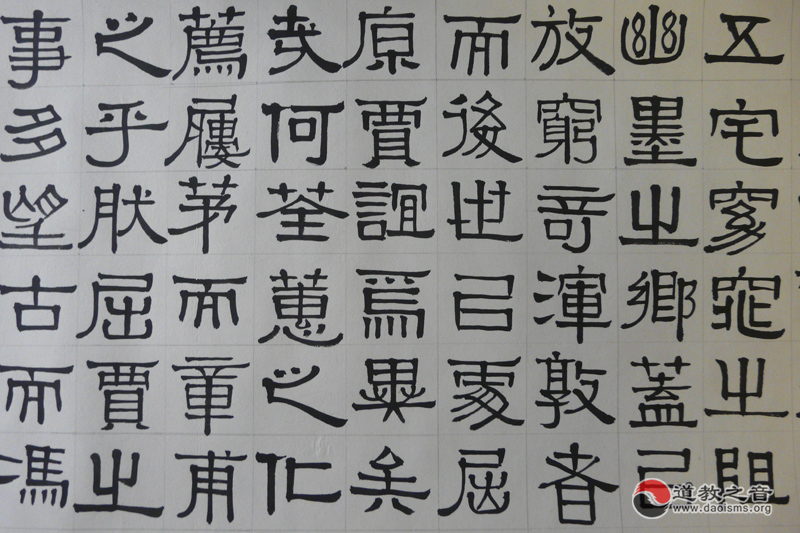 五宅窕之
幽墨之鄉蓋已
放窮奇渾敦者
而後世已屈
原賈誼焉異矣
哉何荃蕙之化
薦履茅而章甫
之乎肰屈賈之
事多望古而馮
道教之音
www.daoisms.org